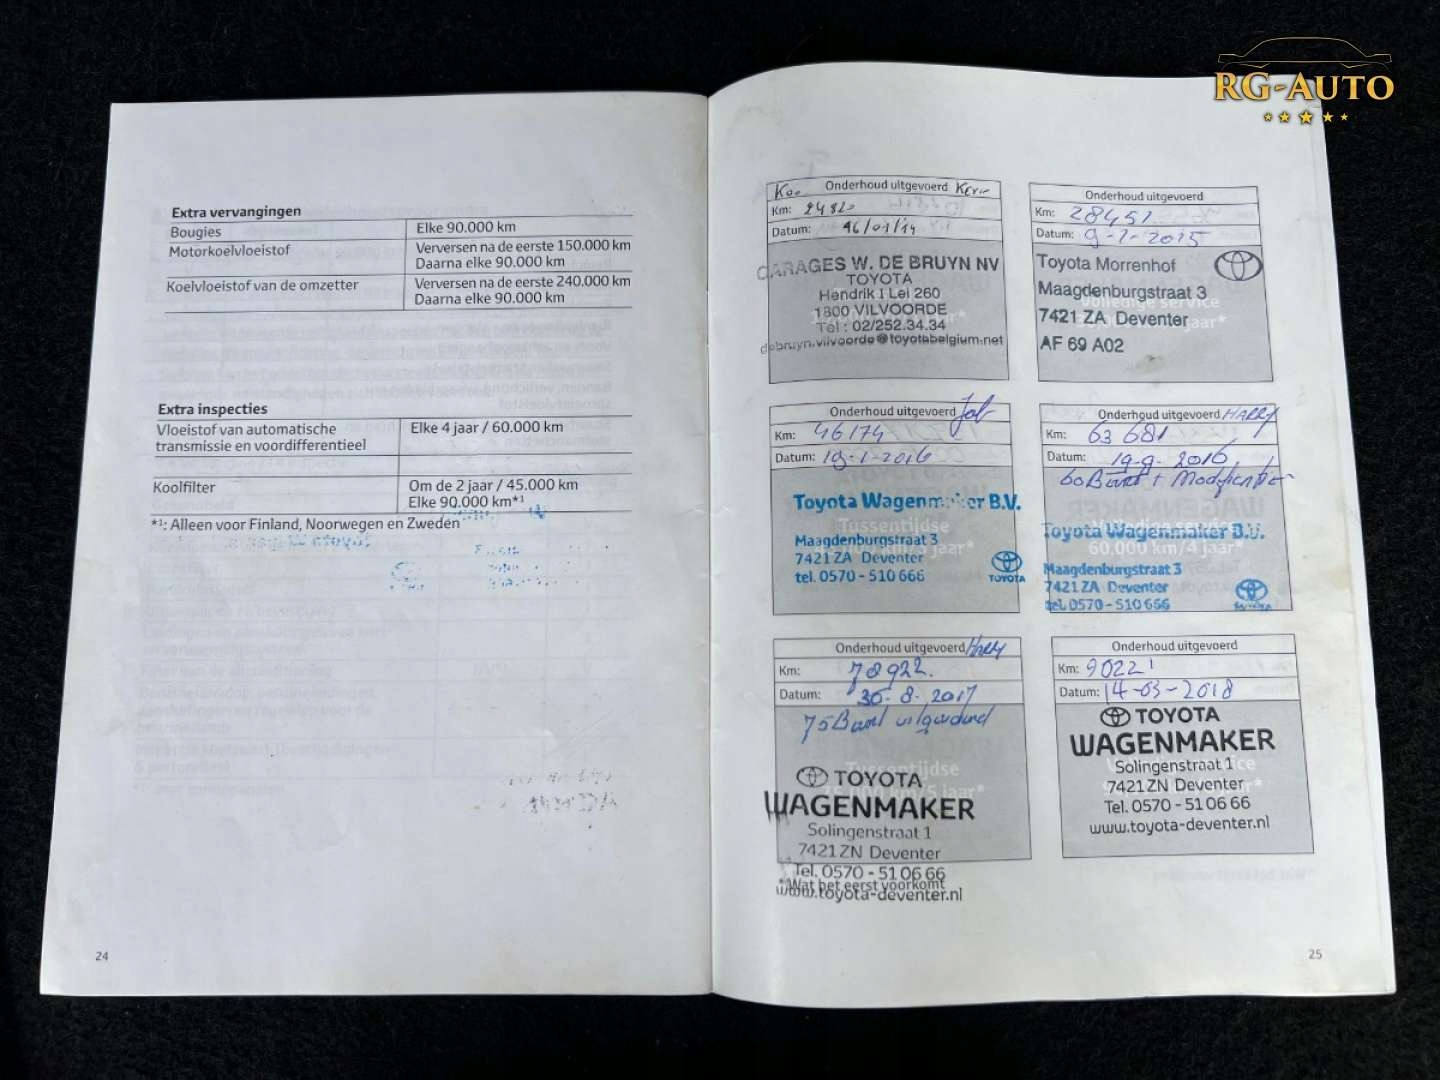 RG-AUTO
Extra vervangingen
Bougies Elke 90.000 km
Motorkoelvloeistof Verversen na de eerste 150.000 km
Daarna elke 90.000 km
Koelvloeistof van de omzetter Verversen na de eerste 240.000 km
Daarna elke 90.000 km
Extra inspecties
Vloeistof van automatische Elke 4 jaar / 60.000 km
transmissie en voordifferentieel
Koolfilter Om de 2 jaar / 45.000 km
Elke 90.000 km*1
*1: Alleen voor Finland, Noorwegen en Zweden
24
Onderhoud uitgevoerd Kevin
Km: 24820
Datum: 16/01/14
GARAGES W. DE BRUYN NV
TOYOTA
Hendrik I Lei 260
1800 VILVOORDE
Tel : 02/252.34.34
debruyn.vilvoorde@toyotabelgium.net
Onderhoud uitgevoerd
Km: 28451
Datum: 9-1-2015
Toyota Morrenhof
Maagdenburgstraat 3
7421 ZA Deventer
AF 69 A02
Onderhoud uitgevoerd
Km: 46174
Datum: 19-1-2016
Toyota Wagenmaker B.V.
Tussentijdse
Maagdenburgstraat 3
7421 ZA Deventer
tel. 0570 - 510 666
TOYOTA
Onderhoud uitgevoerd HARRY
Km: 63681
Datum: 19-9-2016
60 Beurt +
Toyota Wagenmaker B.V.
60,000 km/4 jaar*
Maagdenburgstraat 3
7421 ZA Deventer
tel. 0570 - 510 666
TOYOTA
Onderhoud uitgevoerd Harry
Km: 78922
Datum: 30-8-2017
75 Beurt uitgevoerd
TOYOTA
Tussentijdse
WAGENMAKER
Solingenstraat 1
7421 ZN Deventer
Tel. 0570 - 51 06 66
*Wat het eerst voorkomt
www.toyota-deventer.nl
Onderhoud uitgevoerd
Km: 90221
Datum: 14-03-2018
TOYOTA
WAGENMAKER
Solingenstraat 1
7421 ZN Deventer
Tel. 0570 - 51 06 66
www.toyota-deventer.nl
25